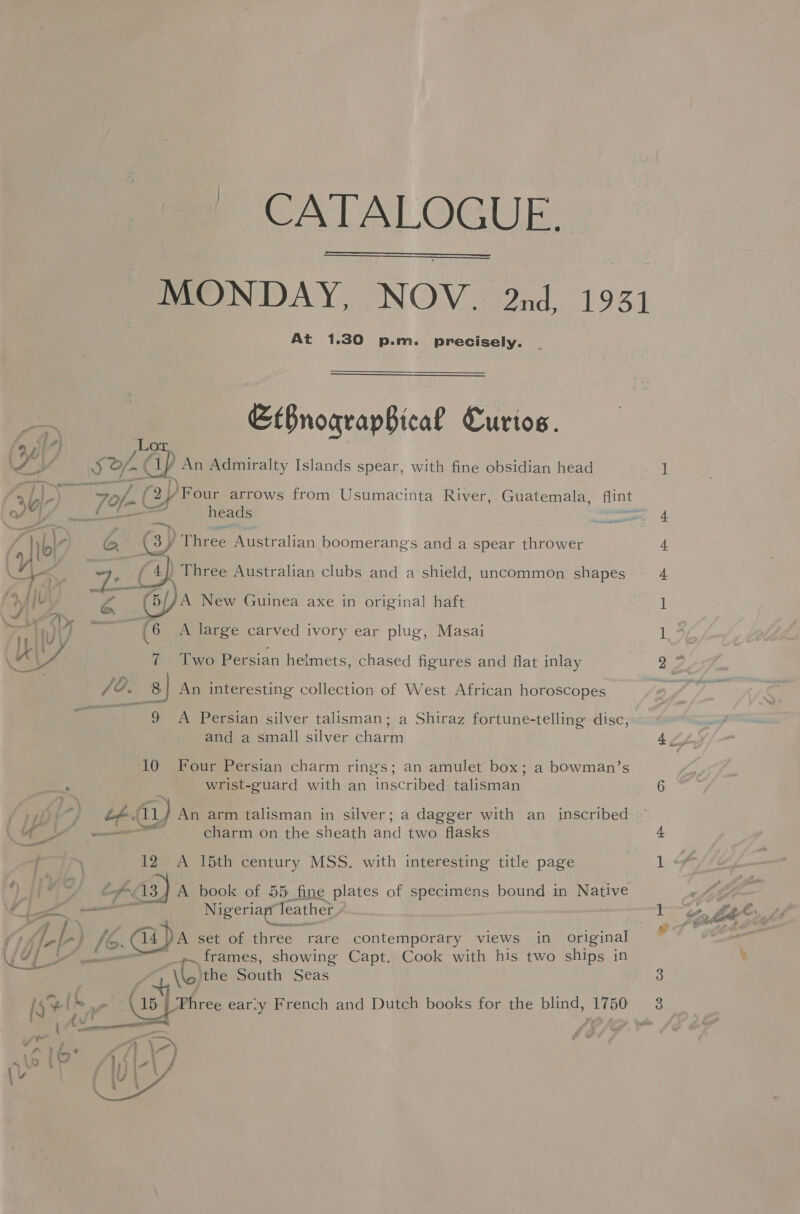 CATALOGUE.
MONDAY, NOV. 2nd, 1931
At 1.30 p.m. precisely.
Ethnographical Curios.
Lot
50/- 1 An Admiralty Islands spear, with fine obsidian head 1
70/- 2 Four arrows from Usumacinta River, Guatemala, flint
heads 4
6 3 Three Australian boomerangs and a spear thrower 4
7. 4 Three Australian clubs and a shield, uncommon shapes 4
6 5 A New Guinea axe in original haft 1
6 A large carved ivory ear plug, Masai 1
7 Two Persian helmets, chased figures and flat inlay 2
10. 8 An interesting collection of West African horoscopes
9 A Persian silver talisman; a Shiraz fortune-telling disc,
and a small silver charm 4
10 Four Persian charm rings; an amulet box; a bowman's
wrist-guard with an inscribed talisman 6
11 An arm talisman in silver; a dagger with an inscribed
charm on the sheath and two flasks 4
12 A 15th century MSS. with interesting title page 1
13 A book of 55 fine plates of specimens bound in Native
Nigerian leather 1
16. 14 A set of three rare contemporary views in original
frames, showing Capt. Cook with his two ships in
the South Seas 3
15 Three early French and Dutch books for the blind, 1750 3